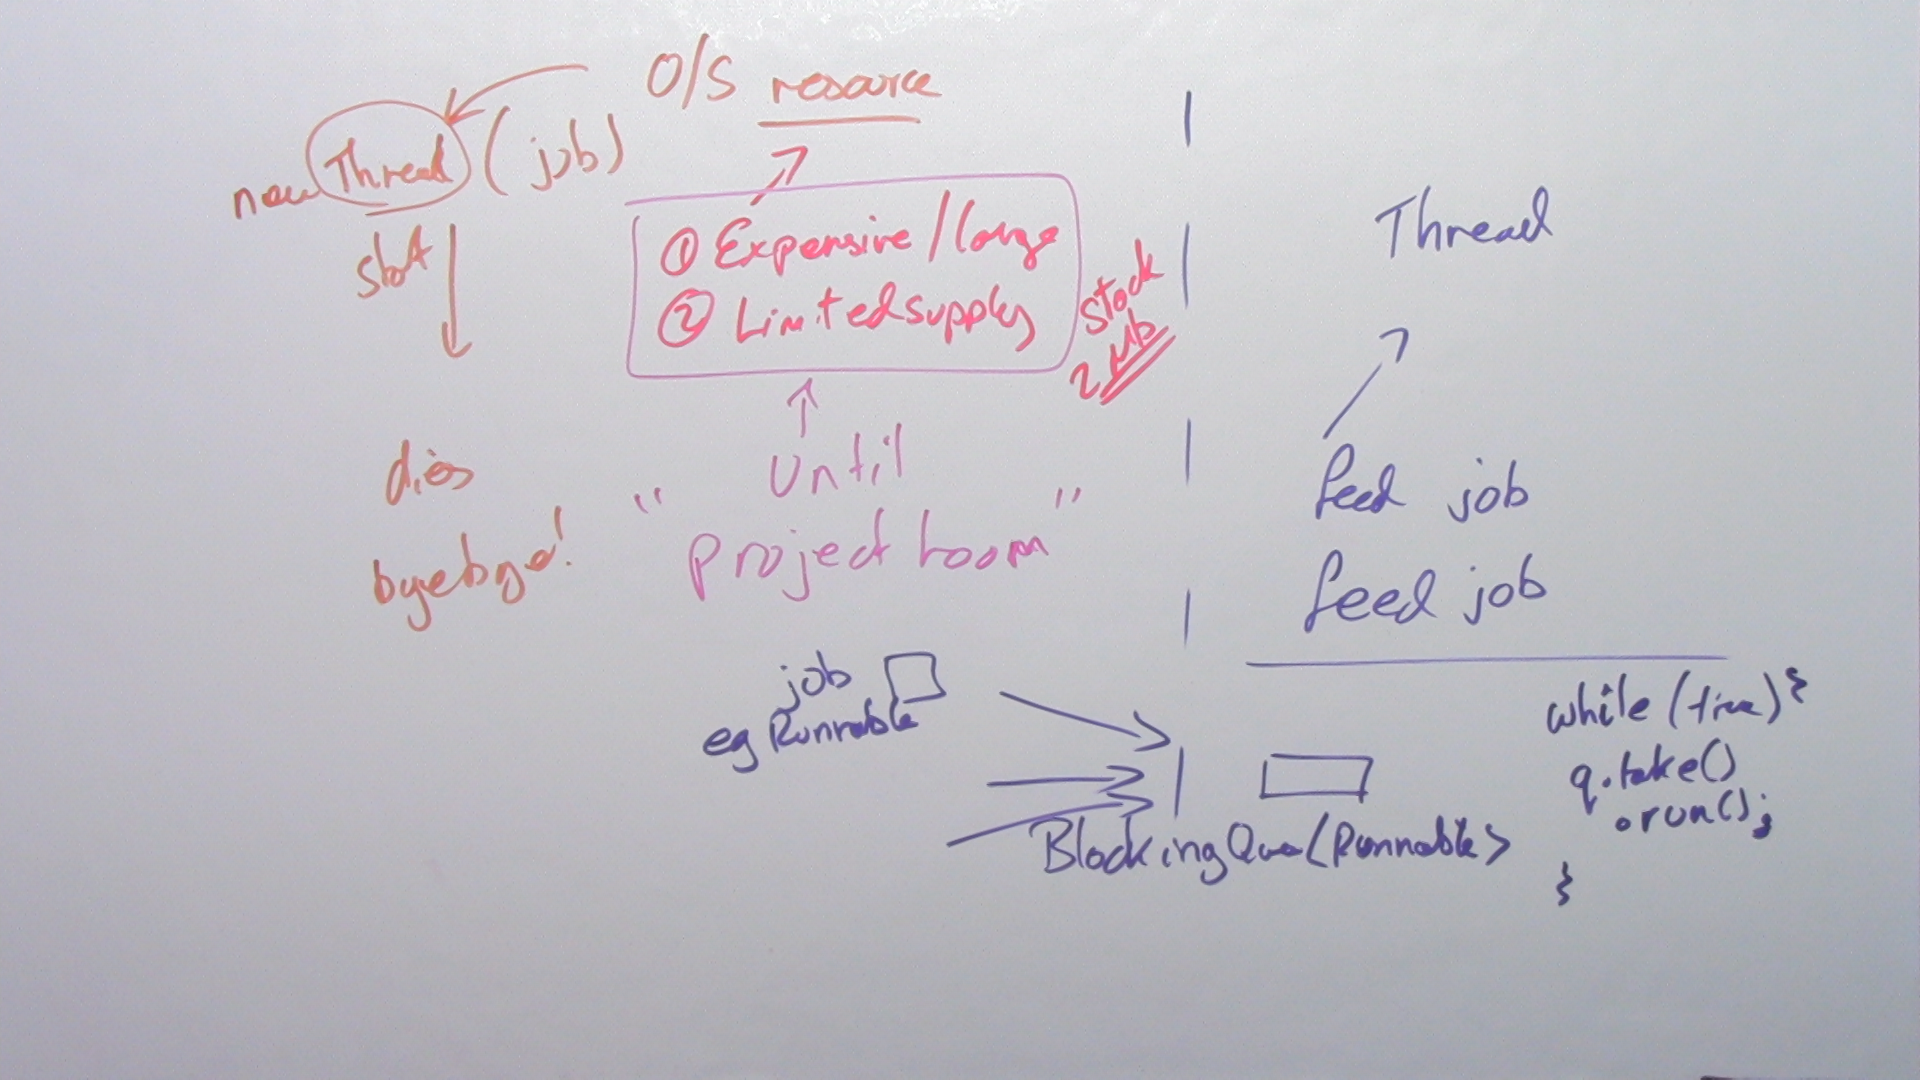 O/S resource
new Thread (job)
start
① Expensive/large
② Limited supply
stack
2 Mb
dies
byebye!
Until
"Project Loom"
Thread
feed job
feed job
job
eg Runnable
BlockingQueue<Runnable>
while (true) {
q.take()
.run();
}